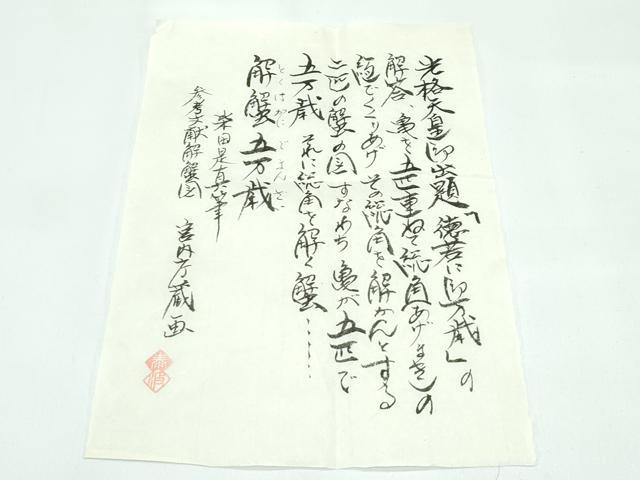 光格天皇御出題「徳若に御万歳」の
解答、亀を五匹重ねて総角あげまきの
紐でくくりあげ その総角を解かんとする
二匹の蟹の図 すなわち 亀が五匹で
五万歳 それに総角を解く蟹……
とくはかに ごまんざい
解蟹 五万歳
柴田是真筆
参考文献解蟹図 宮内庁蔵画